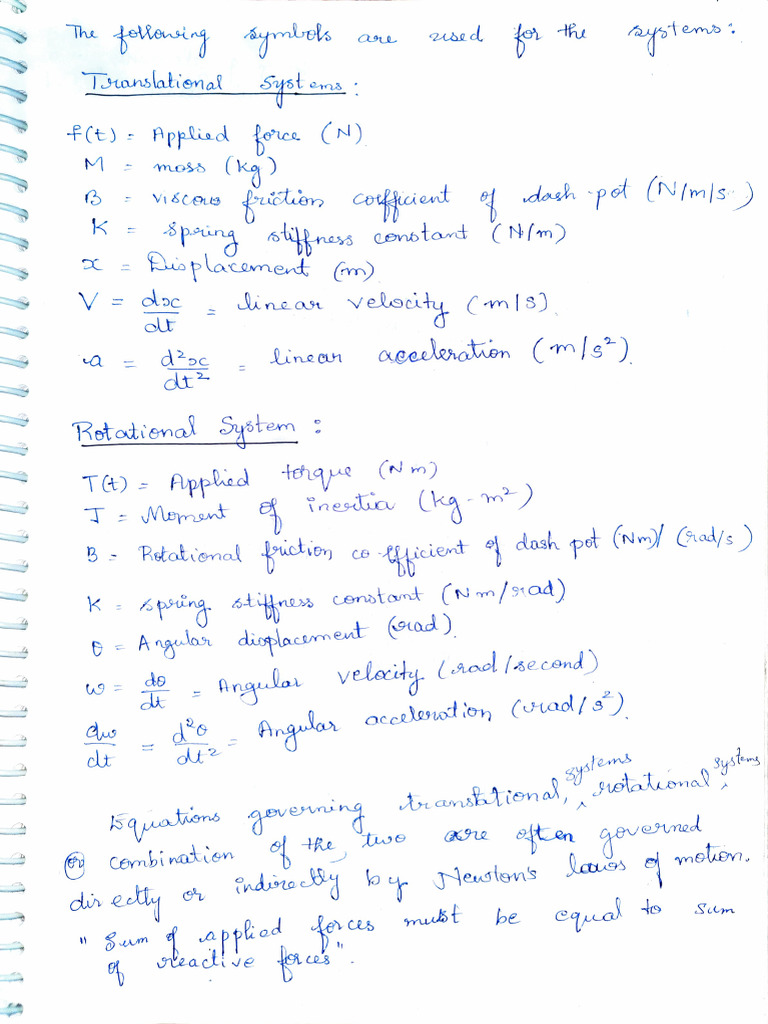 The following symbols are used for the systems:
Translational Systems:
f(t) = Applied force (N)
M = moss (kg)
B = viscous friction coefficient of dash-pot (N/m/s)
K = Spring stiffness constant (N/m)
x = Displacement (m)
V = dx/dt = linear velocity (m/s)
a = d²x/dt² = linear acceleration (m/s²).
Rotational System:
T(t) = Applied torque (Nm)
J = Moment of inertia (kg-m²)
B = Rotational friction co-efficient of dash pot (Nm)/(rad/s)
K = spring stiffness constant (Nm/rad)
θ = Angular displacement (rad).
ω = dθ/dt = Angular velocity (rad/second)
dω/dt = d²θ/dt² = Angular acceleration (rad/s²).
Equations governing translational systems, rotational systems,
or combination of the two are often governed
directly or indirectly by Newton's laws of motion.
"Sum of applied forces must be equal to sum
of reactive forces".